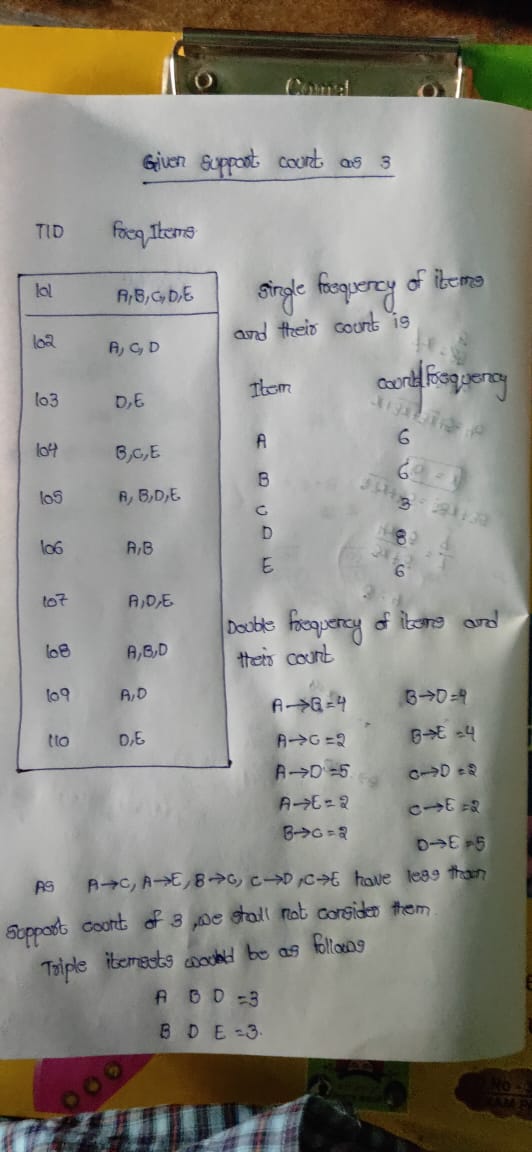 Comet
Given Support count as 3
TID Freq, Items
101 A,B,C,D,E
102 A,C,D
103 D,E
104 B,C,E
105 A,B,D,E
106 A,B
107 A,D,E
108 A,B,D
109 A,D
110 D,E
Single frequency of items
and their count is
Item count/frequency
A 6
B 6
C 3
D 8
E 6
Double frequency of items and
their count
A→B=4 B→D=4
A→C=2 B→E=4
A→D=5 C→D=2
A→E=2 C→E=2
B→C=2 D→E=5
As A→C, A→E, B→C, C→D, C→E have less than
support count of 3, we shall not consider them.
Triple itemsets would be as follows
A B D =3
B D E =3.